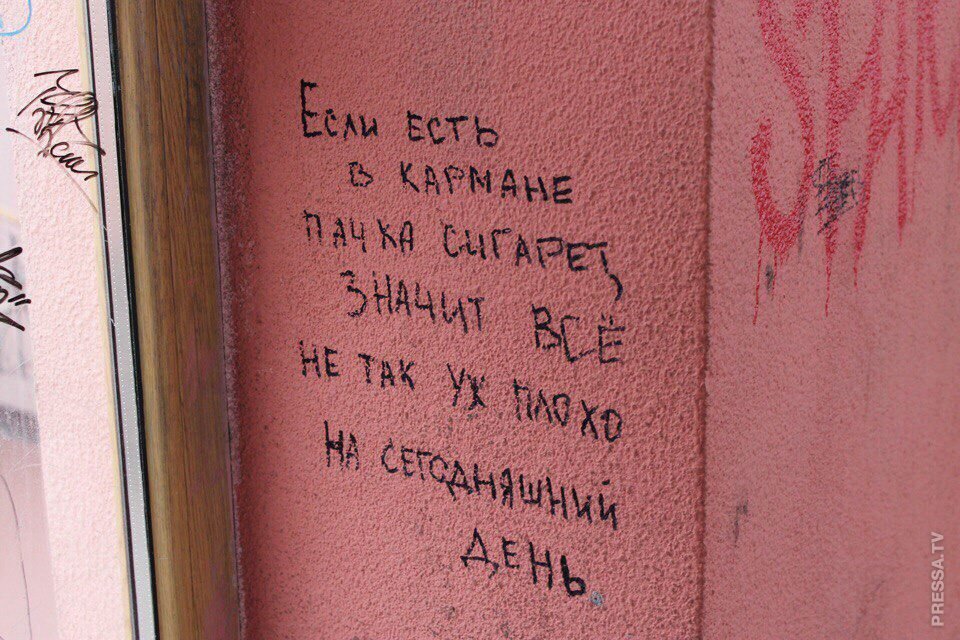 Если есть
в кармане
пачка сигарет,
значит всё
не так уж плохо
на сегодняшний
день.
PRESSA.TV